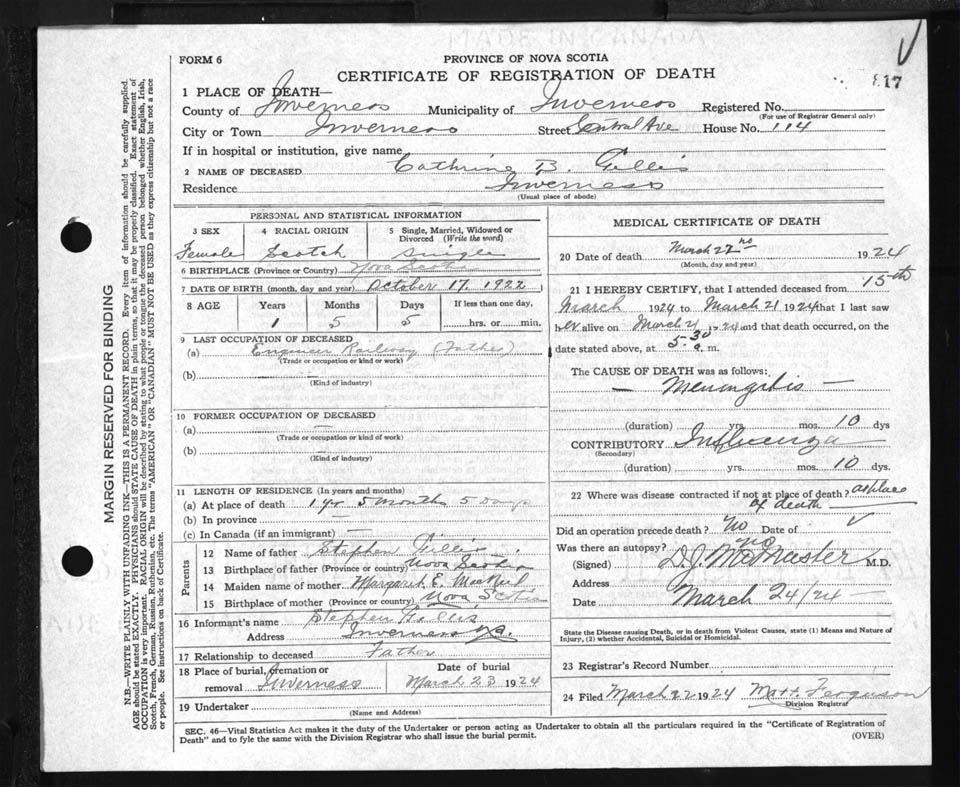 FORM 6
PROVINCE OF NOVA SCOTIA
CERTIFICATE OF REGISTRATION OF DEATH
817
1 PLACE OF DEATH—
County of Inverness Municipality of Inverness Registered No.
(For use of Registrar General only)
City or Town Inverness Street Central Ave House No. 114
If in hospital or institution, give name
2 NAME OF DECEASED Cathrine B. Gillis
Residence Inverness
(Usual place of abode)
PERSONAL AND STATISTICAL INFORMATION
3 SEX 4 RACIAL ORIGIN 5 Single, Married, Widowed or Divorced (Write the word)
Female Scotch Single
6 BIRTHPLACE (Province or Country) Nova Scotia
7 DATE OF BIRTH (month, day and year) October 17, 1922
8 AGE Years Months Days If less than one day,
1 5 5 hrs. or min.
9 LAST OCCUPATION OF DECEASED
(a) Engineer Railway (Father)
(Trade or occupation or kind or work)
(b)
(Kind of industry)
10 FORMER OCCUPATION OF DECEASED
(a) —
(Trade or occupation or kind of work)
(b) —
(Kind of industry)
11 LENGTH OF RESIDENCE (In years and months)
(a) At place of death 1 yr 5 months 5 Days
(b) In province —
(c) In Canada (if an immigrant) —
Parents
12 Name of father Stephen Gillis
13 Birthplace of father (Province or country) Nova Scotia
14 Maiden name of mother Margaret E. MacNeil
15 Birthplace of mother (Province or country) Nova Scotia
16 Informant's name Stephen Gillis
Address Inverness N.S.
17 Relationship to deceased Father
18 Place of burial, cremation or removal Inverness
Date of burial
March 23 1924
19 Undertaker
(Name and Address)
MEDICAL CERTIFICATE OF DEATH
20 Date of death March 22nd 1924
(Month, day and year)
21 I HEREBY CERTIFY, that I attended deceased from 15th
March 1924 to March 21 1924 that I last saw
her alive on March 21 1924 and that death occurred, on the
date stated above, at 5.30 a. m.
The CAUSE OF DEATH was as follows:
— Meningitis —
(duration) yrs. mos. 10 dys
CONTRIBUTORY Influenza
(Secondary)
(duration) yrs. mos. 10 dys.
22 Where was disease contracted if not at place of death? at place
of death
Did an operation precede death? no Date of
Was there an autopsy? no
(Signed) D.J. McMaster M.D.
Address
Date March 24/24
State the Disease causing Death, or in death from Violent Causes, state (1) Means and Nature of Injury, (2) whether Accidental, Suicidal or Homicidal.
23 Registrar's Record Number
24 Filed March 22 1924 Matt. Ferguson
Division Registrar
SEC. 46—Vital Statistics Act makes it the duty of the Undertaker or person acting as Undertaker to obtain all the particulars required in the "Certificate of Registration of
Death" and to fyle the same with the Division Registrar who shall issue the burial permit.
(OVER)
MARGIN RESERVED FOR BINDING
N.B.—WRITE PLAINLY WITH UNFADING INK—THIS IS A PERMANENT RECORD. Every item of information should be carefully supplied.
AGE should be stated EXACTLY. PHYSICIANS should STATE CAUSE OF DEATH in plain terms, so that it may be properly classified. Exact statement of
OCCUPATION is very important. RACIAL ORIGIN will be described by stating to what people or tongue the deceased person belonged whether English, Irish,
Scotch, French, German, Russian, Ruthenian, etc. The terms "AMERICAN" OR "CANADIAN" MUST NOT BE USED as they express citizenship but not a race
or people. See instructions on back of Certificate.